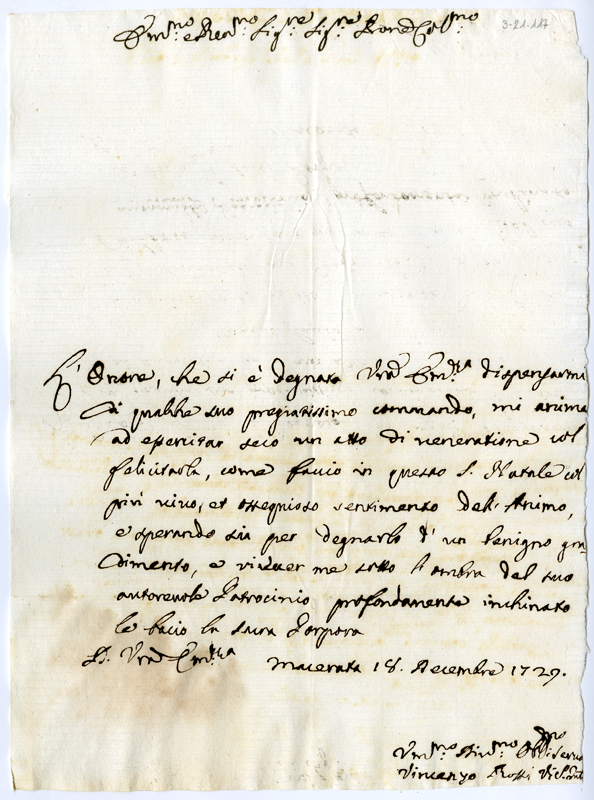 Em.mo e Rev.mo Sig.re Sig.re Prone Col.mo
3-21-117
L'Onore, che si è degnata Vra Em.za dispensarmi
di qualche suo pregiatissimo commando, mi anima
ad essercitar seco un atto di veneratione col
felicitarla, come faccio in questo S. Natale col
più vivo, et ossequioso sentimento dell'Animo,
e sperando sia per degnarlo d'un benigno gra-
dimento, e viver me sotto l'ombra del suo
autorevole Patrocinio profondamente inchinato
le bacio la sacra Porpora
D. Vra Em.za Macerata 18. Decembre 1729.
Um.mo Div.mo Obl.mo Servo
Vincenzo Rossi